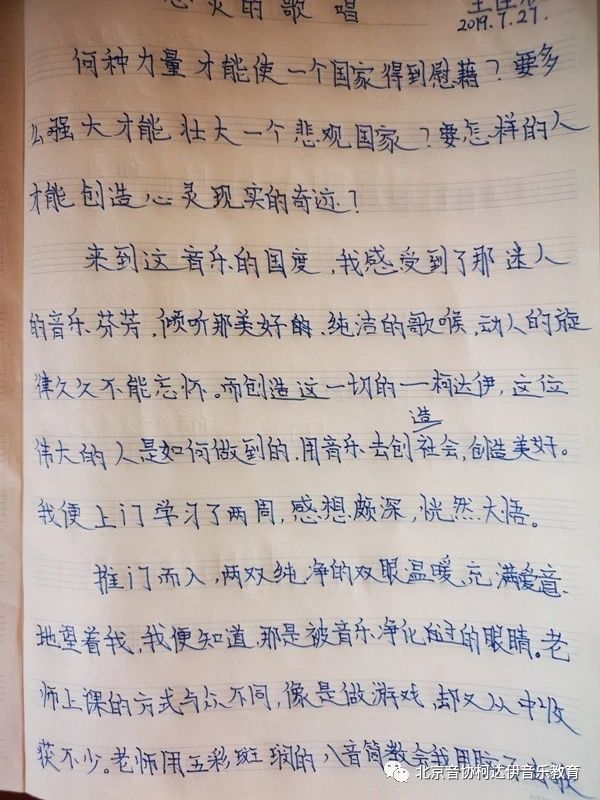 灵的歌唱
2019.7.27.
何种力量才能使一个国家得到慰藉？要多
么强大才能壮大一个悲观国家？要怎样的人
才能创造心灵现实的奇迹？
来到这音乐的国度，我感受到了那迷人
的音乐芬芳，倾听那美好的、纯洁的歌喉，动人的旋
律久久不能忘怀。而创造这一切的一柯达伊，这位
伟大的人是如何做到的，用音乐去创造社会，创造美好。
我便上门学习了两周，感想颇深，恍然大悟。
推门而入，两双纯净的双眼温暖、充满爱意
地望着我，我便知道，那是被音乐净化过的眼睛。老
师上课的方式与众不同，像是做游戏，却又从中收
获不少。老师用五彩斑斓的八音筒教会我用
北京音协柯达伊音乐教育